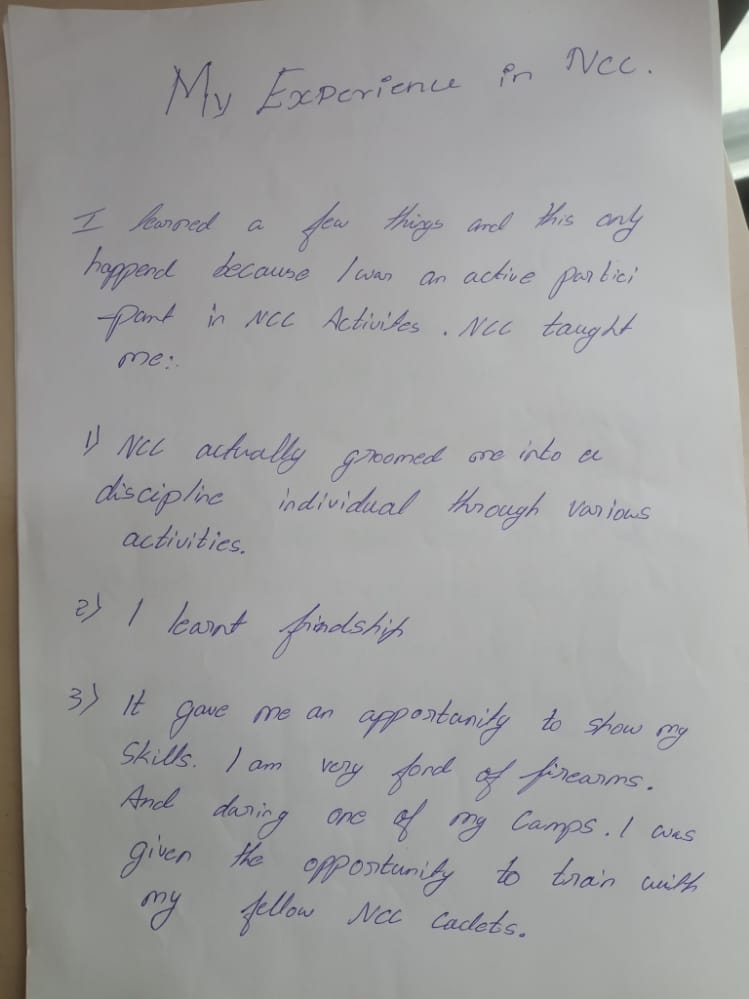 My Experience in NCC.
I learned a few things and this only
happend because I was an active partici
-pant in NCC Activites. NCC taught
me:.
1) NCC actually groomed me into a
discipline individual through various
activities.
2) I learnt frindship
3) It gave me an apportunity to show my
skills. I am very fond of firearms.
And during one of my Camps. I was
given the opportunity to train with
my fellow NCC Cadets.